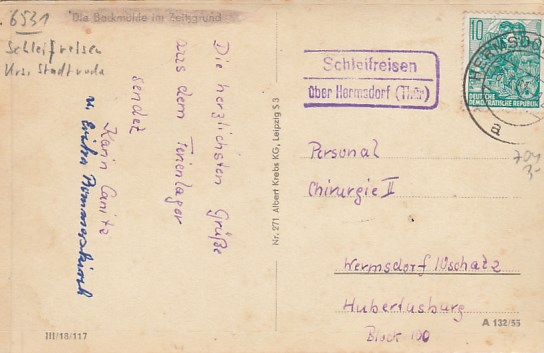 6531
Schleifreisen
Krs. Stadtroda
Die Bockmühle im Zeitzgrund
Die herzlichsten Grüße
aus dem Ferienlager
sendet
Karin Canitz
u. Erika
Nr. 271 Albert Krebs KG, Leipzig S 3
III/18/117
10
DEUTSCHE
DEMOKRATISCHE REPUBLIK
HERMSDO
a
Schleifreisen
über Hermsdorf (Thür)
Personal
Chirurgie II
Wermsdorf
Hubertusburg
Block 100
A 132/55